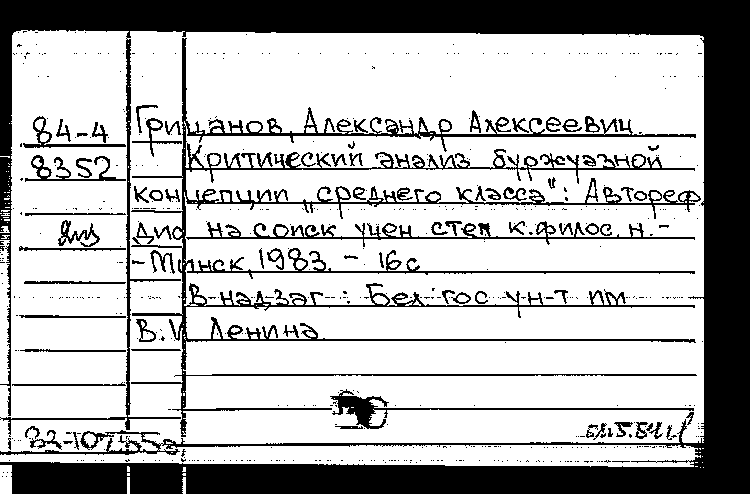 84-4 Грицанов, Александр Алексеевич
8352 Критический анализ буржуазной
концепции „среднего класса": Автореф.
дис на соиск учен степ к.филос.н. -
- Минск, 1983. - 16с.
В надзаг.: Бел. гос ун-т им
В.И Ленина